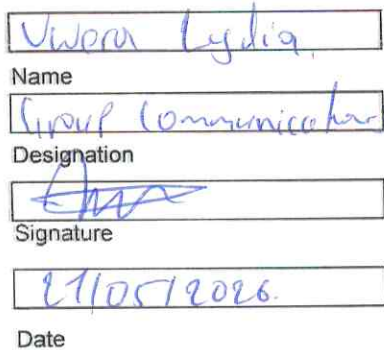 Vwora Lydia
Name
Group Communication
Designation
Signature
21/05/2026.
Date